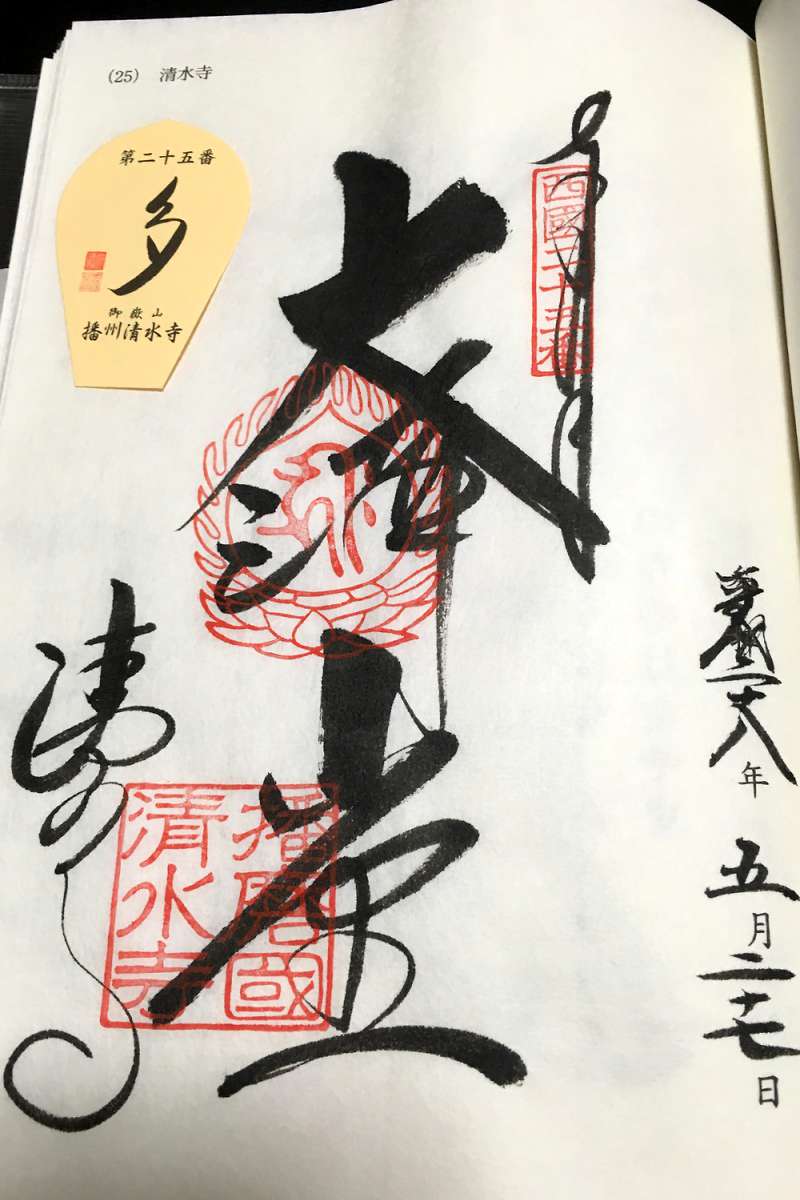 (25) 清水寺
第二十五番
多
御嶽山
播州清水寺
西國二十五番
大講堂
播磨國
清水寺
年 五月二十七日